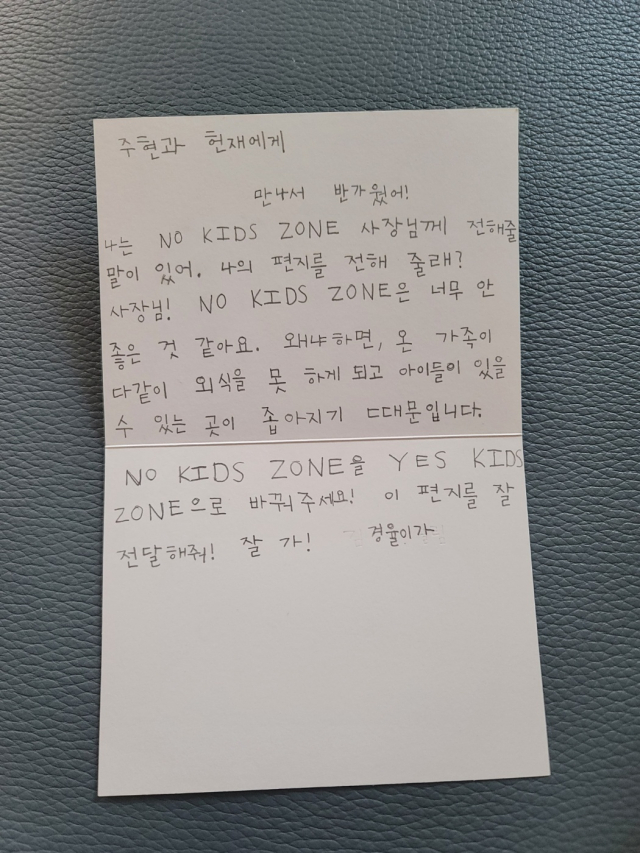 주현과 헌재에게
만나서 반가웠어!
나는 NO KIDS ZONE 사장님께 전해줄
말이 있어. 나의 편지를 전해 줄래?
사장님! NO KIDS ZONE은 너무 안
좋은 것 같아요. 왜냐하면, 온 가족이
다같이 외식을 못 하게 되고 아이들이 있을
수 있는 곳이 좁아지기 때문입니다.
NO KIDS ZONE을 YES KIDS
ZONE으로 바꿔주세요! 이 편지를 잘
전달해줘! 잘 가! 경율이가